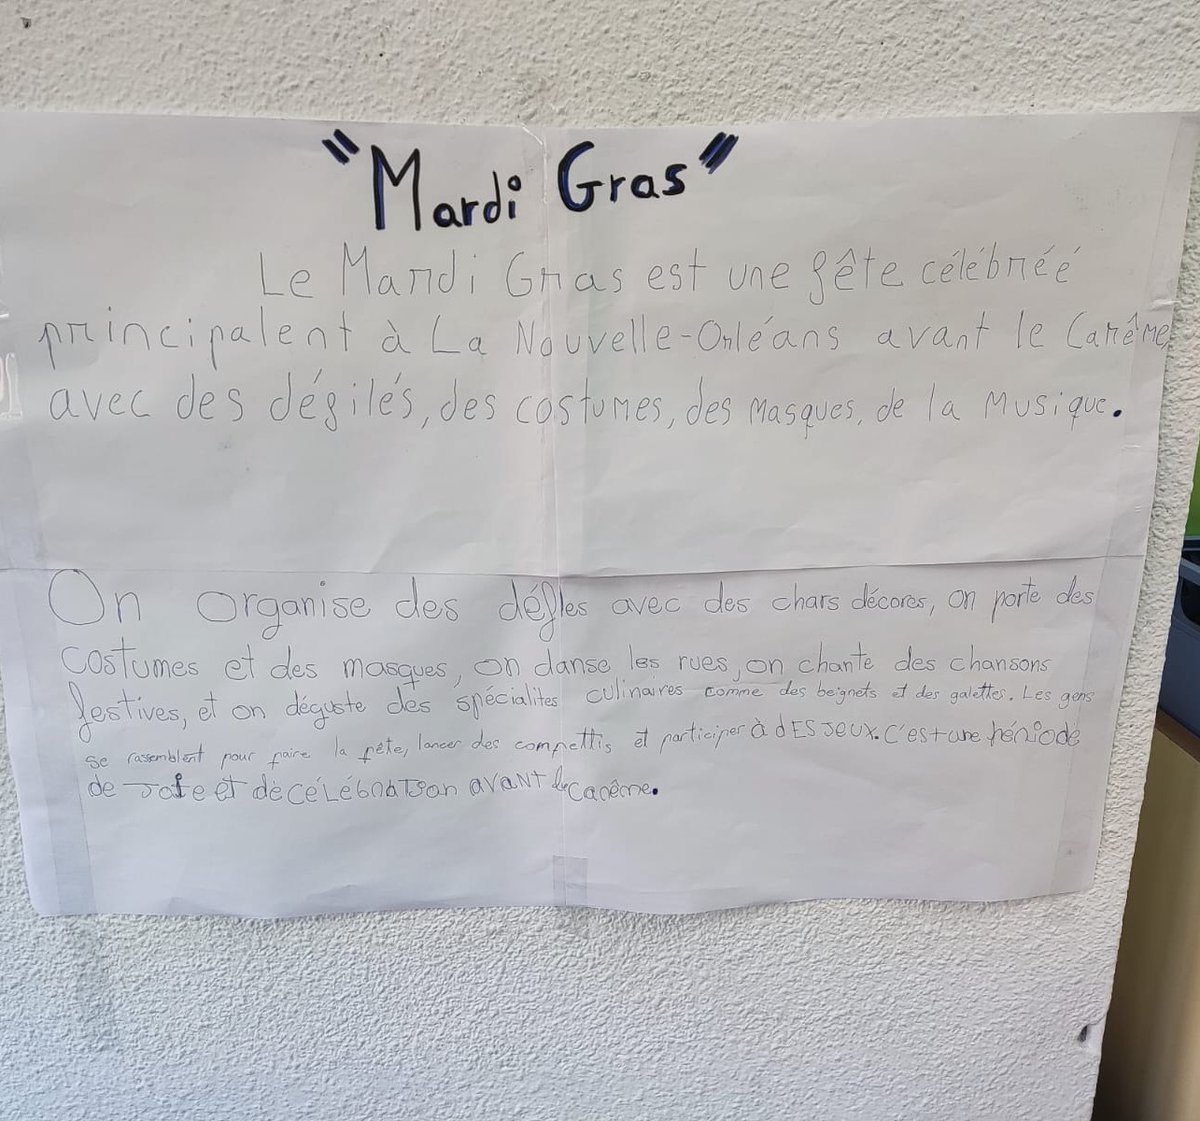 "Mardi Gras"
Le Mardi Gras est une fête célébréé
principalent à La Nouvelle-Orléans avant le Carême
avec des défilés, des costumes, des masques, de la Musique.
On organise des défles avec des chars décores, on porte des
costumes et des masques, on danse les rues, on chante des chansons
festives, et on déguste des spécialites culinaires comme des beignets et des galettes. Les gens
se rassemblent pour faire la fête, lancer des compettis et participer à dES JEUX. C'est une période
de Joie et de CÉLÉbratIon AVANT le Carême.